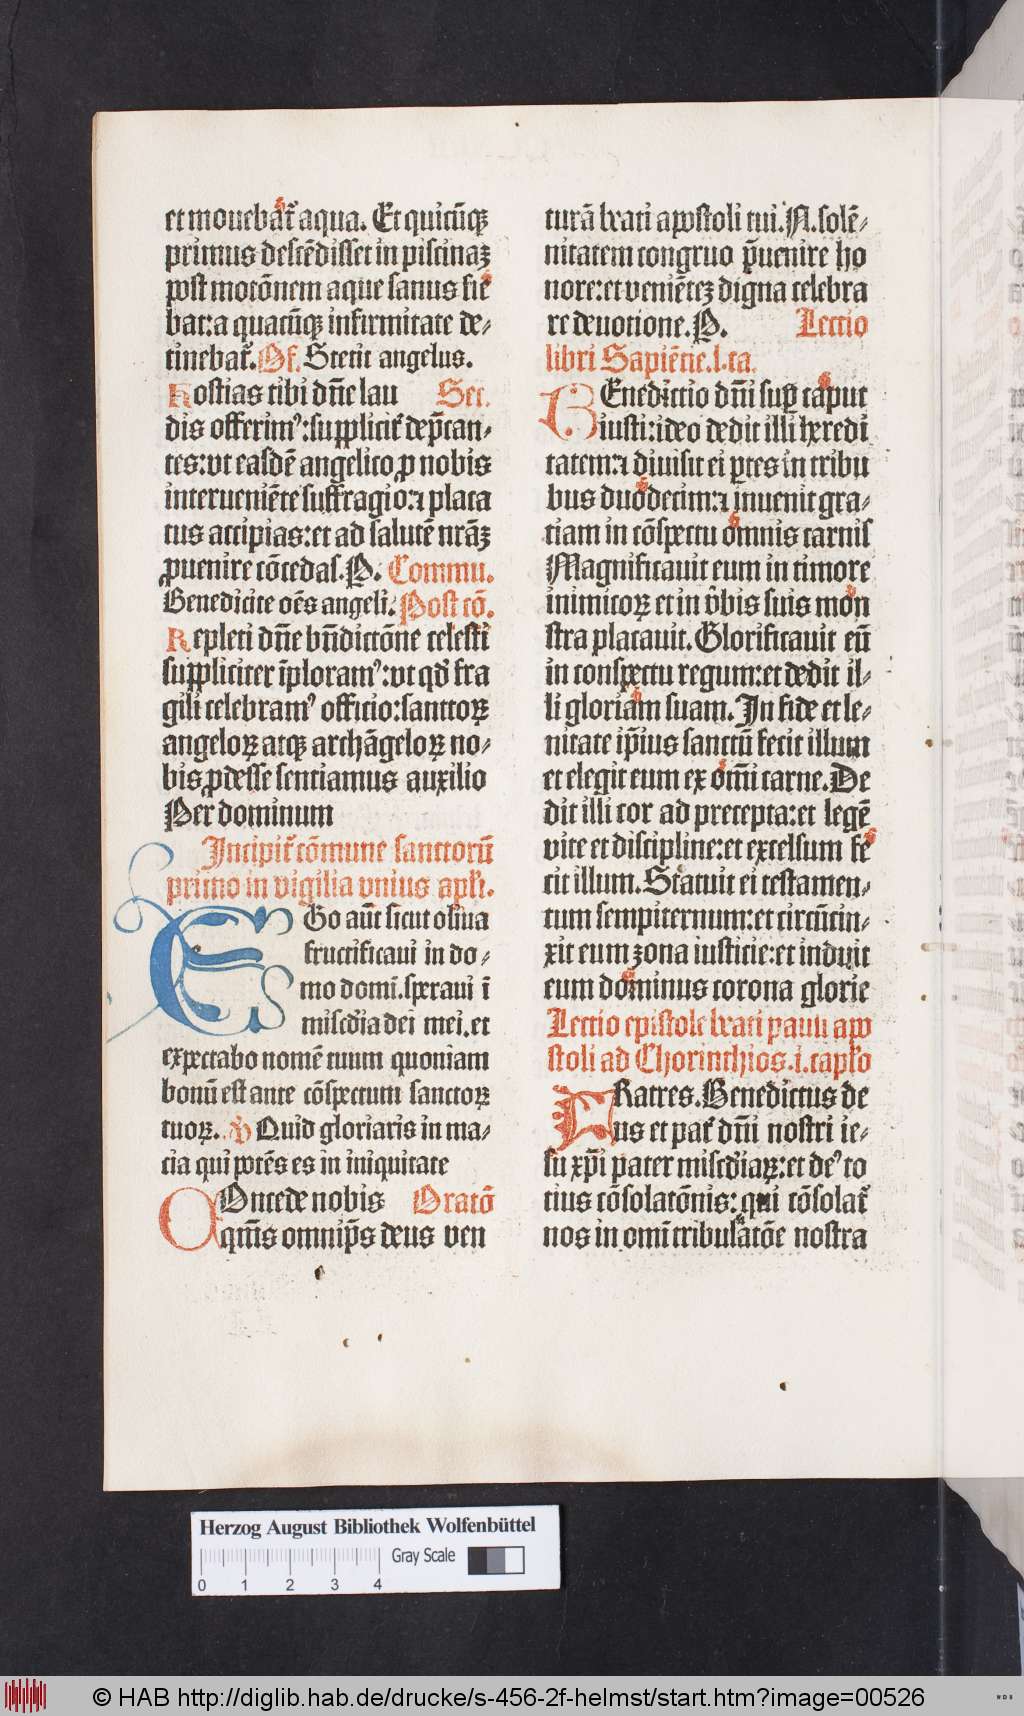 et mouebat᷑ aqua. Et quicūqꝫ
primus descēdisset in piscinaꝫ
post motōnem aque sanus fie
bat: a quacūqꝫ infirmitate de⸗
tinebat᷑. Of. Stetit angelus.
Hostias tibi dn̄e lau Sec.
dis offerimꝰ: supplicit᷑ dep̄can⸗
tes: vt easdē angelico ꝓ nobis
interueniēte suffragio: ⁊ placa
tus accipias: et ad salutē nr̄aꝫ
ꝓuenire cōcedas. P. Commu.
Benedicite oēs angeli. Post cō.
Repleti dn̄e bn̄dictōne celesti
suppliciter īploramꝰ: vt qd̄ fra
gili celebramꝰ officio: sanctoꝝ
angeloꝝ atqꝫ archāgeloꝝ no⸗
bis ꝓdesse sentiamus auxilio
Per dominum
Incipit᷑ cōmune sanctorū
primo in vigilia vnius apl̓i.
EGo aūt sicut oliua
fructificaui in do⸗
mo domī. speraui ī
mīscd̓ia dei mei. et
expectabo nomē tuum quoniam
bonū est ante cōspectum sanctoꝝ
tuoꝝ. V̓ Quid gloriaris in ma⸗
cia qui potēs es in iniquitate
COncede nobis Oratō
qūs omnip̄s deus ven
turā beati apostoli tui. N. solē⸗
nitatem congruo p̄uenire ho
nore: et veniēteꝫ digna celebra
re deuotione. P. Lectio
libri Sapiētie. l. ca.
BEnedictio dn̄i suꝑ caput
iusti: ideo dedit illi heredi
tatem: ⁊ diuisit ei ꝑtes in tribu
bus duodecim: ⁊ inuenit gra⸗
tiam in cōspectu omnis carnis
Magnificauit eum in timore
inimicoꝝ et in v̓bis suis mon
stra placauit. Glorificauit eū
in conspectu regum: et dedit il⸗
li gloriam suam. In fide et le⸗
nitate ip̄ius sanctū fecit illum
et elegit eum ex omī carne. De
dit illi cor ad precepta: et legē
vite et discipline: et excelsum fe
cit illum. Statuit ei testamen⸗
tum sempiternum: et circūcin⸗
xit eum zona iusticie: et induit
eum dominus corona glorie
Lectio epistole beati pauli apo
stoli ad Chorinthios. i. capl̓o
FRatres. Benedictus de
us et pat᷑ dn̄i nostri ie⸗
su xp̄i pater miscd̓iaꝝ: et deꝰ to
tius cōsolatōnis: qui cōsolat᷑
nos in omī tribulatōe nostra
Herzog August Bibliothek Wolfenbüttel
Gray Scale
0 1 2 3 4
© HAB http://diglib.hab.de/drucke/s-456-2f-helmst/start.htm?image=00526